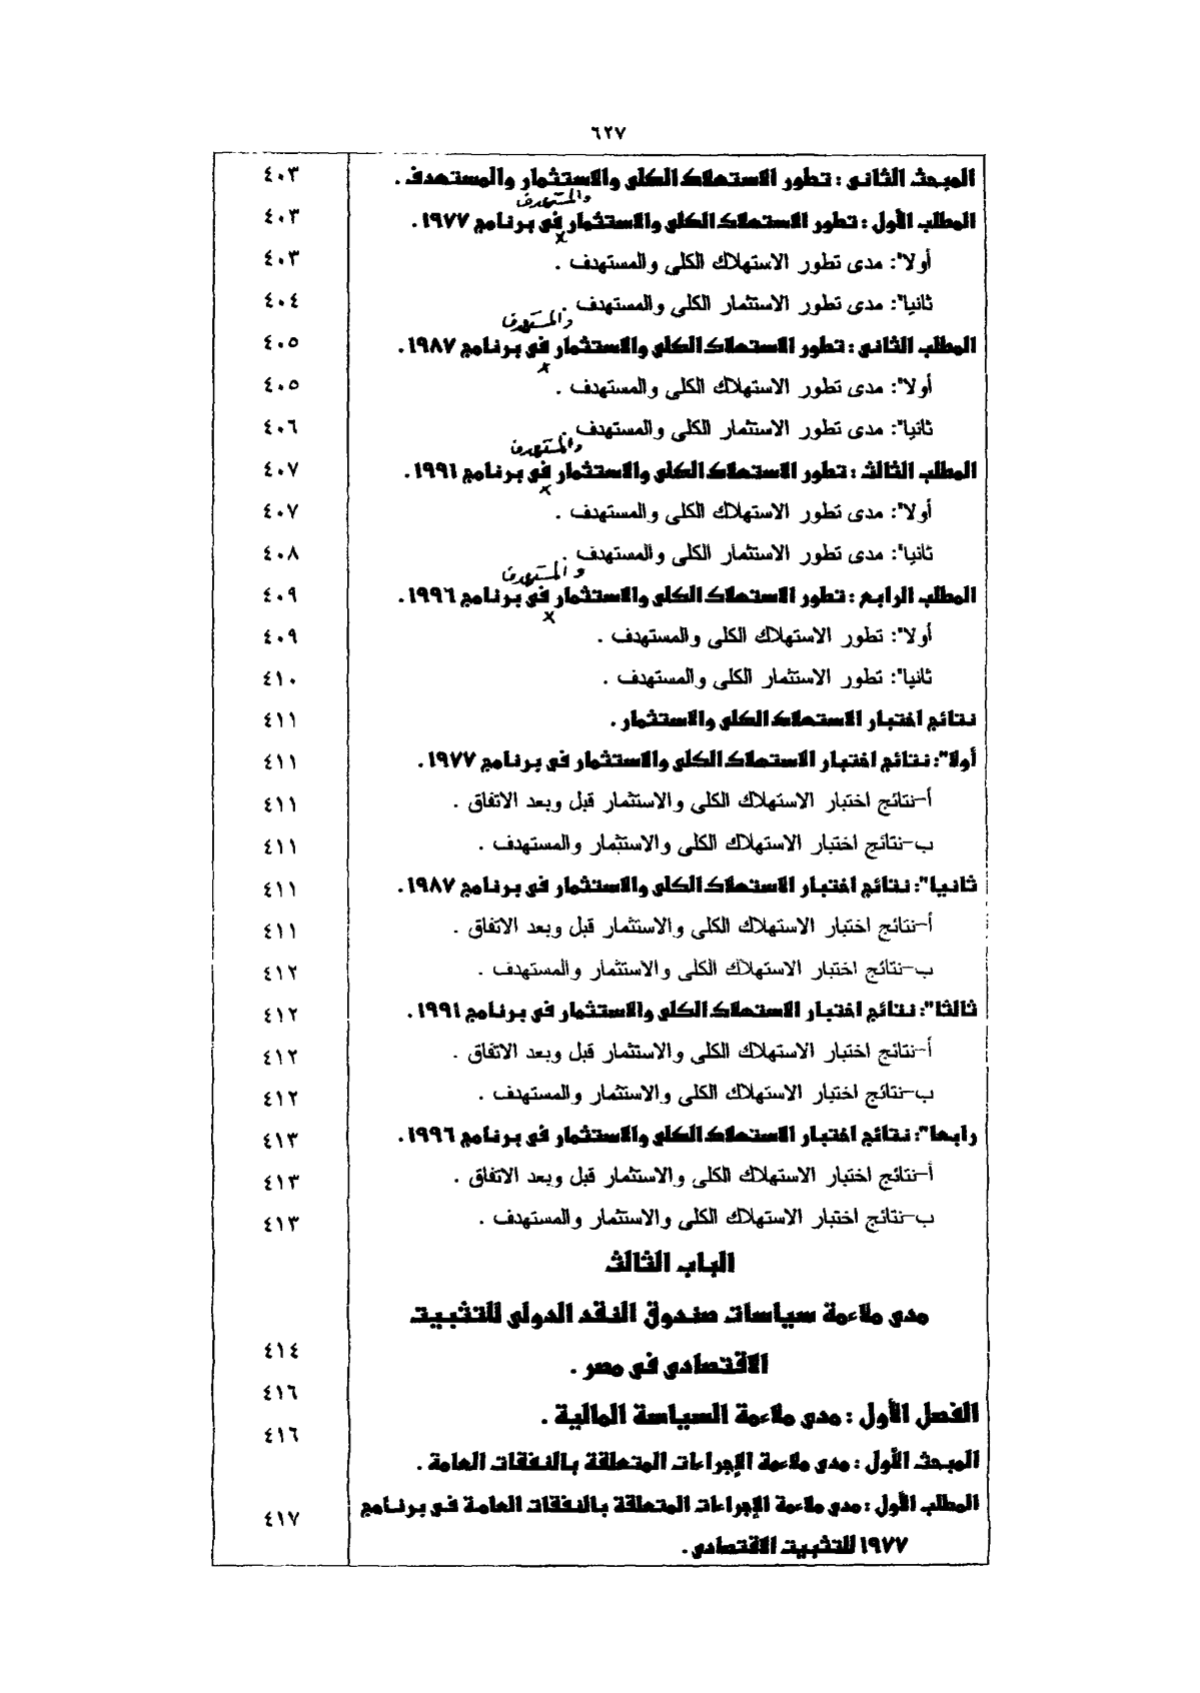 ٦٢٧
المبحث الثانى : تطور الاستهلاك الكلى والاستثمار والمستهدف . ٤٠٣
والمستهدف
المطلب الأول : تطور الاستهلاك الكلى والاستثمار فى برنامج ١٩٧٧ . ٤٠٣
x
أولا": مدى تطور الاستهلاك الكلى والمستهدف . ٤٠٣
ثانيا": مدى تطور الاستثمار الكلى والمستهدف . ٤٠٤
والمستهدف
المطلب الثانى : تطور الاستهلاك الكلى والاستثمار فى برنامج ١٩٨٧ . ٤٠٥
x
أولا": مدى تطور الاستهلاك الكلى والمستهدف . ٤٠٥
ثانيا": مدى تطور الاستثمار الكلى والمستهدف . ٤٠٦
والمستهدف
المطلب الثالث : تطور الاستهلاك الكلى والاستثمار فى برنامج ١٩٩١ . ٤٠٧
x
أولا": مدى تطور الاستهلاك الكلى والمستهدف . ٤٠٧
ثانيا": مدى تطور الاستثمار الكلى والمستهدف . ٤٠٨
والمستهدف
المطلب الرابع : تطور الاستهلاك الكلى والاستثمار فى برنامج ١٩٩٦ . ٤٠٩
x
أولا": تطور الاستهلاك الكلى والمستهدف . ٤٠٩
ثانيا": تطور الاستثمار الكلى والمستهدف . ٤١٠
نتائج اختبار الاستهلاك الكلى والاستثمار . ٤١١
أولا": نتائج اختبار الاستهلاك الكلى والاستثمار فى برنامج ١٩٧٧ . ٤١١
أ-نتائج اختبار الاستهلاك الكلى والاستثمار قبل وبعد الاتفاق . ٤١١
ب-نتائج اختبار الاستهلاك الكلى والاستثمار والمستهدف . ٤١١
ثانيا": نتائج اختبار الاستهلاك الكلى والاستثمار فى برنامج ١٩٨٧ . ٤١١
أ-نتائج اختبار الاستهلاك الكلى والاستثمار قبل وبعد الاتفاق . ٤١١
ب-نتائج اختبار الاستهلاك الكلى والاستثمار والمستهدف . ٤١٢
ثالثا": نتائج اختبار الاستهلاك الكلى والاستثمار فى برنامج ١٩٩١ . ٤١٢
أ-نتائج اختبار الاستهلاك الكلى والاستثمار قبل وبعد الاتفاق . ٤١٢
ب-نتائج اختبار الاستهلاك الكلى والاستثمار والمستهدف . ٤١٢
رابعا": نتائج اختبار الاستهلاك الكلى والاستثمار فى برنامج ١٩٩٦ . ٤١٣
أ-نتائج اختبار الاستهلاك الكلى والاستثمار قبل وبعد الاتفاق . ٤١٣
ب-نتائج اختبار الاستهلاك الكلى والاستثمار والمستهدف . ٤١٣
الباب الثالث
مدى ملاءمة سياسات صندوق النقد الدولى للتثبيت
الاقتصادى فى مصر . ٤١٤
الفصل الأول : مدى ملاءمة السياسة المالية . ٤١٦
المبحث الأول : مدى ملاءمة الإجراءات المتعلقة بالنفقات العامة . ٤١٦
المطلب الأول : مدى ملاءمة الإجراءات المتعلقة بالنفقات العامة فى برنامج ٤١٧
١٩٧٧ للتثبيت الاقتصادى .